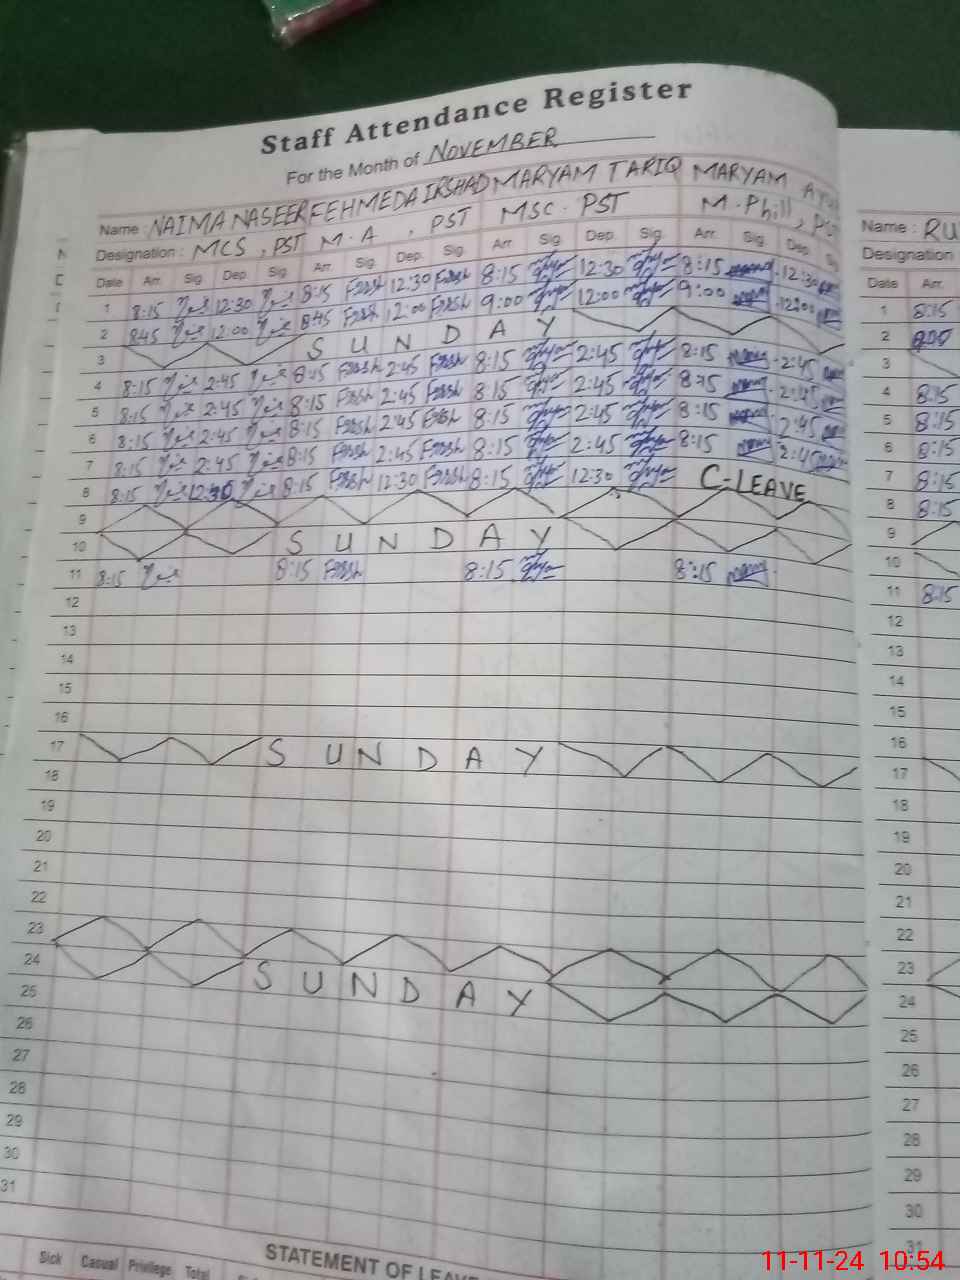 Staff Attendance Register
For the Month of NOVEMBER
Name : NAIMA NASEER FEHMEDA IRSHAD MARYAM TARIQ MARYAM
Designation : MCS , PST M.A , PST MSC. PST M.Phill,
Date Arr. Sig. Dep. Sig. Arr. Sig. Dep. Sig. Arr. Sig. Dep. Sig. Arr. Sig. Dep.
1 8:15 12:30 8:15 12:30 8:15 12:30 8:15 12:30
2 8:45 12:00 8:45 12:00 9:00 12:00 9:00 12:00
3 SUNDAY
4 8:15 2:45 8:15 2:45 8:15 2:45 8:15 2:45
5 8:15 2:45 8:15 2:45 8:15 2:45 8:15 2:45
6 8:15 2:45 8:15 2:45 8:15 2:45 8:15 2:45
7 8:15 2:45 8:15 2:45 8:15 2:45 8:15 2:45
8 8:15 12:30 8:15 12:30 8:15 12:30 C-LEAVE
9
10 SUNDAY
11 8:15 8:15 8:15 8:15
12
13
14
15
16
17 SUNDAY
18
19
20
21
22
23
24 SUNDAY
25
26
27
28
29
30
31
STATEMENT OF LEAVE
Sick Casual Privilege Total
Name : RU
Designation
Date Arr.
1 8:15
2
3
4 8:15
5 8:15
6 8:15
7 8:15
8 8:15
9
10
11 8:15
12
13
14
15
16
17
18
19
20
21
22
23
24
25
26
27
28
29
30
31
11-11-24 10:54